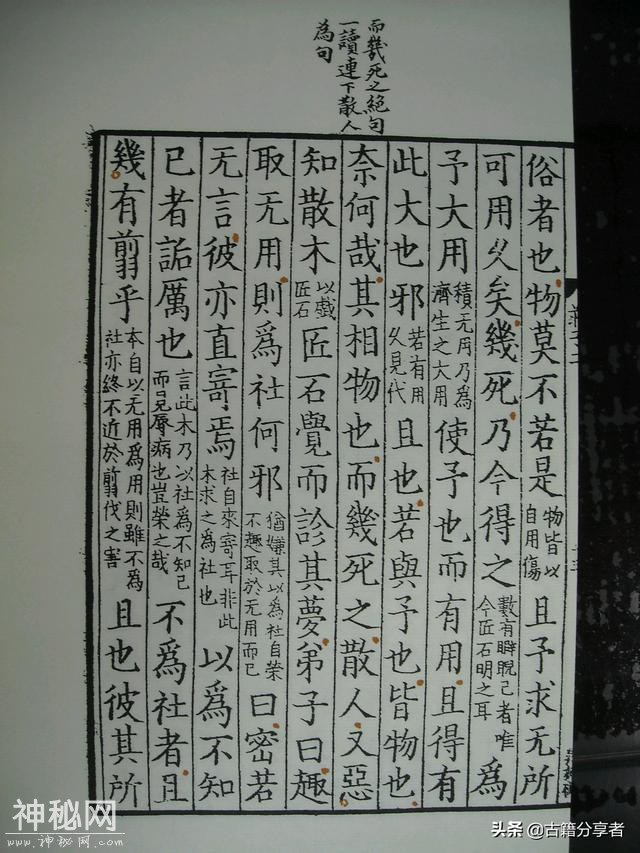 而幾死之絶句
一讀連下散人
為句
俗者也物莫不若是物皆以自用傷且予求无所
可用久矣幾死乃今得之數有睥睨己者唯今匠石明之耳為
予大用積无用乃為濟生之大用使予也而有用且得有
此大也邪若有用久見代且也若與予也皆物也
奈何哉其相物也而幾死之散人又惡
知散木以戲匠石匠石覺而診其夢弟子曰趣
取无用則爲社何邪猶嫌其以為社自榮不趣取於无用而已曰密若
无言彼亦直寄焉社自來寄耳非此木求之為社也以爲不知
己者詬厲也言此木乃以社為不知己而見辱病也豈榮之哉不爲社者且
幾有翦乎本自以无用爲用則雖不為社亦終不近於翦伐之害且也彼其所
神秘网
www.神秘网.com
头条 @古籍分享者